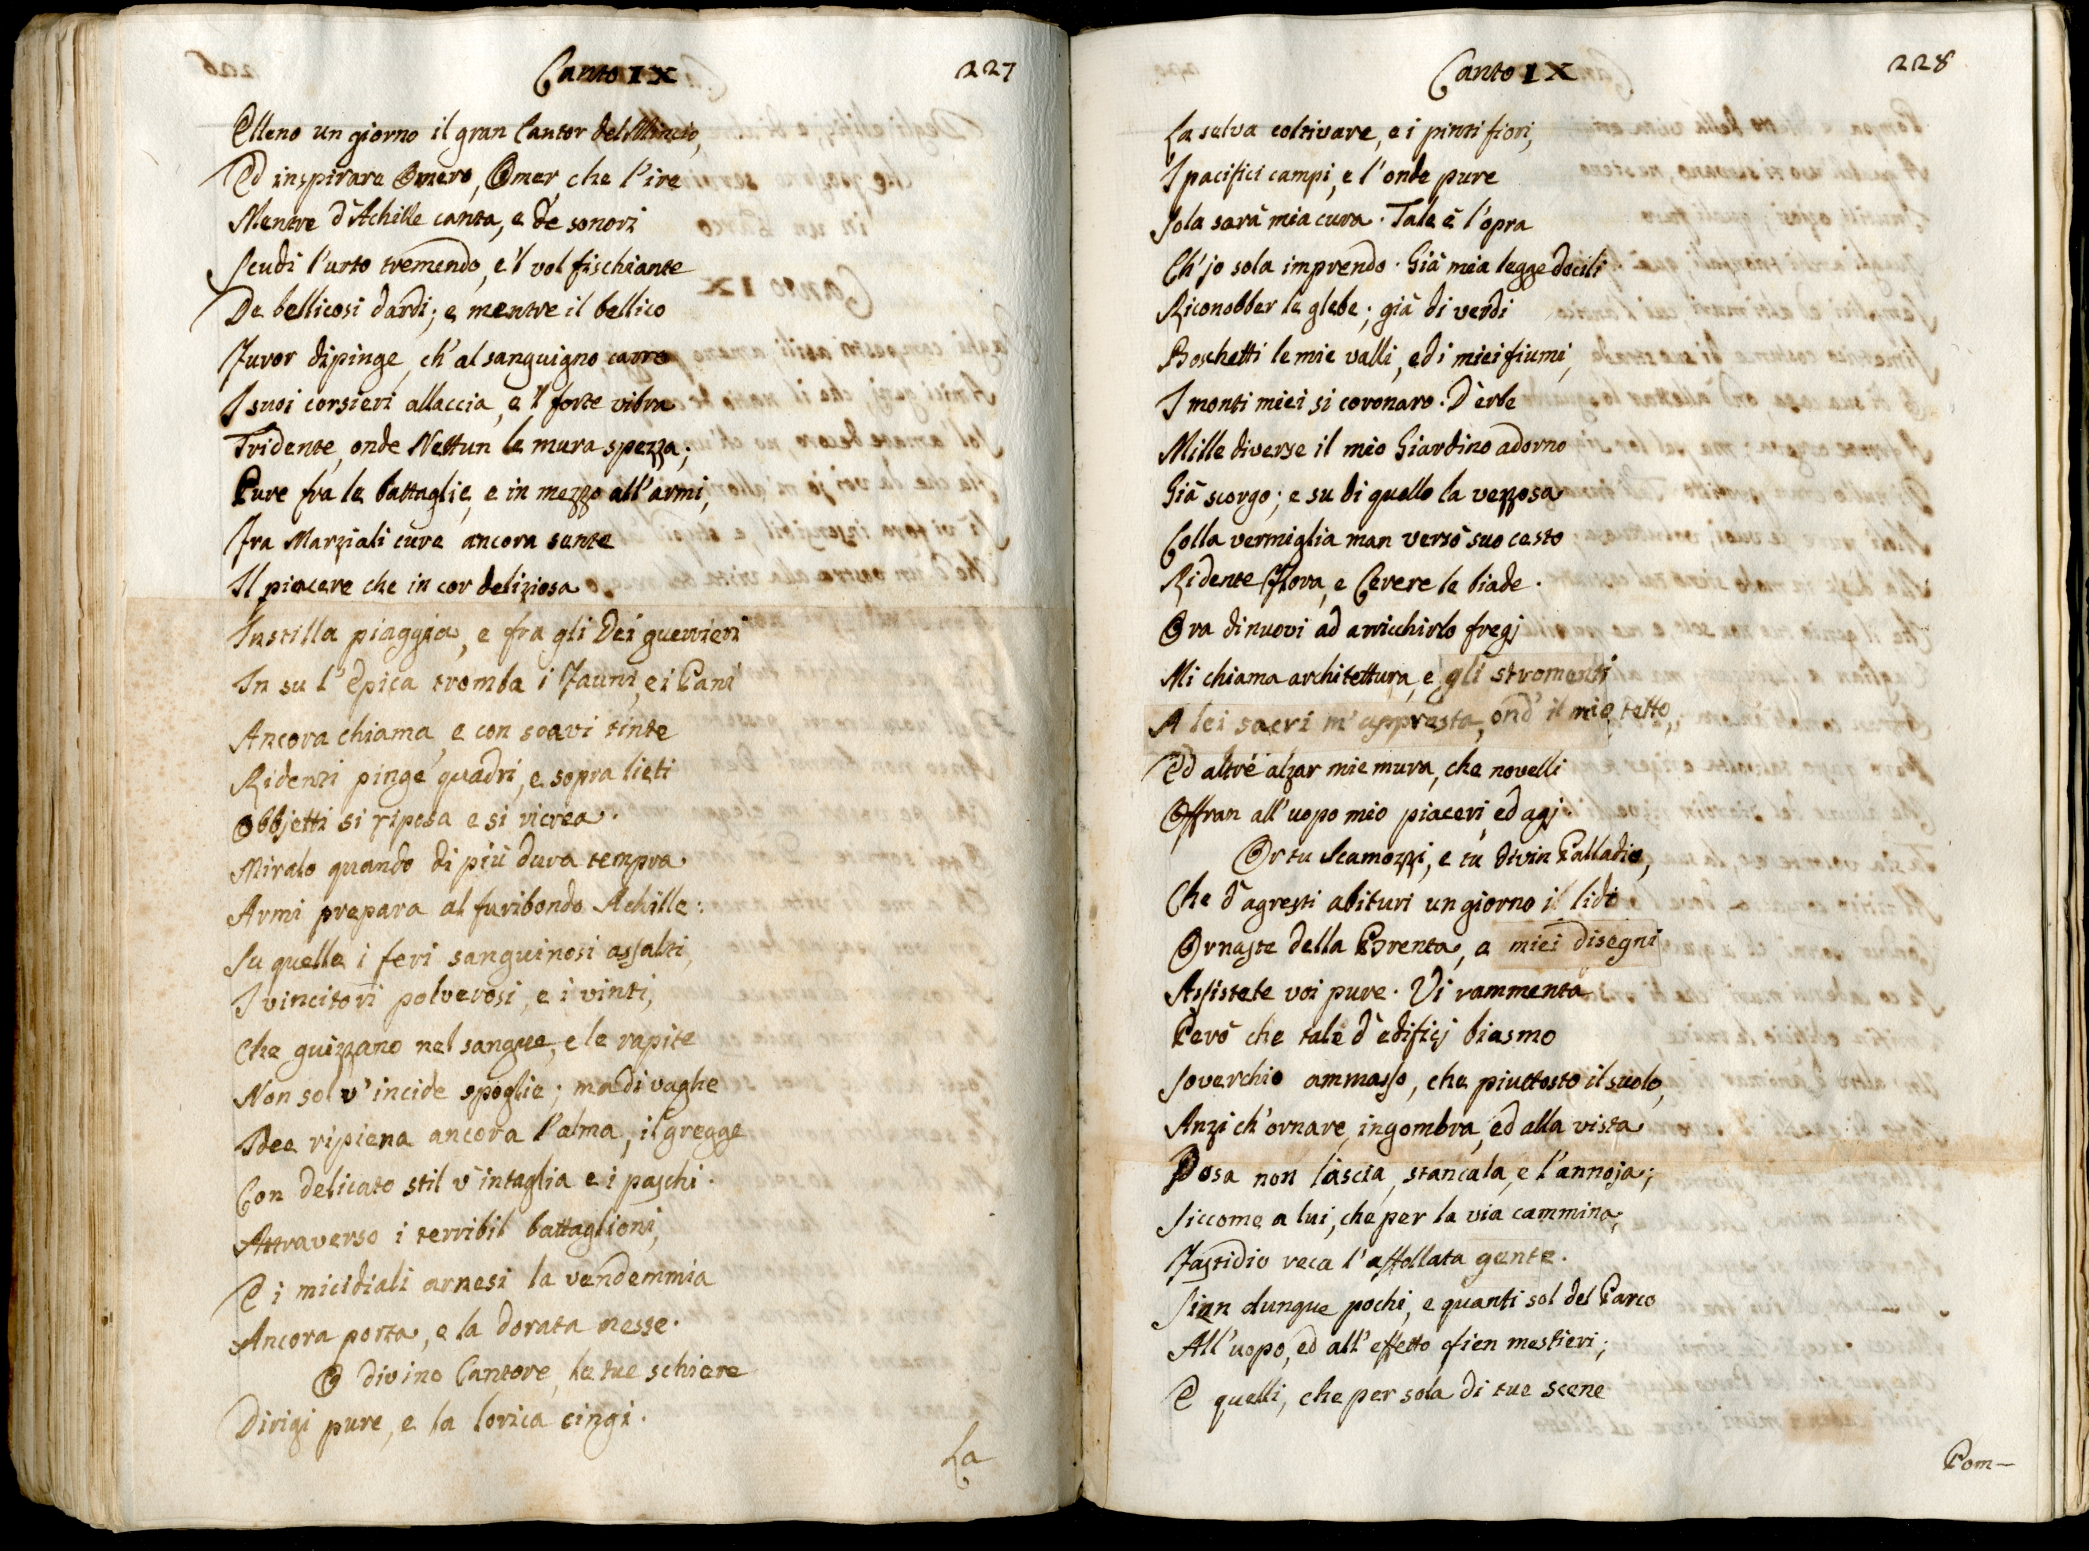 Canto IX
227
Elleno un giorno il gran Cantor del Mincio,
Ed inspirare Omero, Omer che l'ire
Mentre d'Achille canta, e de sonori
Scudi l'urto tremendo, e'l vol fischiante
De bellicosi dardi; e mentre il bellico
Furor dipinge, ch'al sanguigno carro
I suoi corsieri allaccia, e'l forte vibra
Tridente, onde Nettun le mura spezza;
Pure fra le battaglie, e in mezzo all'armi,
Fra Marziali cure ancora sente
Il piacere che in cor deliziosa
Instilla piaggia, e fra gli Dei guerrieri
In su l'epica tromba i Fauni, ei Pani
Ancora chiama, e con soavi tinte
Ridenti pinge quadri, e sopra lieti
Obbjetti si riposa e si ricrea.
Miralo quando di più dura tempra
Armi prepara al furibondo Achille:
Su quelle i feri sanguinosi assalti,
I vincitori polverosi, e i vinti,
Che guizzano nel sangue, e le rapite
Non sol v'incide spoglie; ma di vaghe
Idee ripiena ancora l'alma, il gregge
Con delicato stil v'intaglia e i paschi.
Attraverso i terribil battaglioni,
E i micidiali arnesi la vendemmia
Ancora porta, e la dorata messe.
O divino Cantore, le tue schiere
Dirigi pure, e la lorica cingi.
La
Canto IX
228
La selva coltivare, e i pinti fiori,
I pacifici campi, e l'onde pure
Sola sarà mia cura. Tale è l'opra
Ch'jo sola imprendo. Già mia legge docili
Riconobber le glebe; già di verdi
Boschetti le mie valli, ed i miei fiumi,
I monti miei si coronaro. D'erbe
Mille diverse il mio Giardino adorno
Già scorgo; e su di quello la vezzosa
Colla vermiglia man versò suo cesto
Ridente Flora, e Cerere le biade.
Ora di nuovi ad arricchirlo fregj
Mi chiama architettura, e gli stromenti
A lei sacri m'appresta, ond' il mio tetto,
Ed altre alzar mie mura, che novelli
Offran all'uopo mio piaceri, ed agj.
Or tu Scamozzi, e tu divin Palladio,
Che d'agresti abituri un giorno il lido
Ornaste della Brenta, a miei disegni
Assistete voi pure. Vi rammenta
Però che tale d'edificj biasmo
Soverchio ammasso, che piuttosto il suolo,
Anzi ch'ornare, ingombra, ed alla vista
Posa non lascia, stancala, e l'annoja;
Siccome a lui, che per la via cammina,
Fastidio reca l'affollata gente.
Sien dunque pochi, e quanti sol del Parco
All'uopo, ed all'effetto fien mestieri;
E quelli, che per sola di tue scene
Pom-